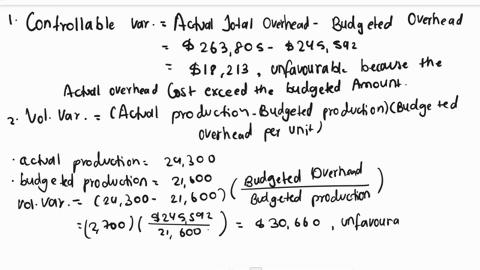 1. Controllable Var. = Actual Total Overhead - Budgeted Overhead
= $263,805 - $245,592
= $18,213, unfavourable because the
Actual overhead Cost exceed the budgeted Amount.
2. Vol. Var. = (Actual production - Budgeted production)(Budgeted
overhead per unit)
• actual production = 24,300
• budgeted production = 21,600
vol. var. = (24,300 - 21,600) (Budgeted Overhead / Budgeted production)
= (2,700) ($245,592 / 21,600) = $30,660, unfavoura